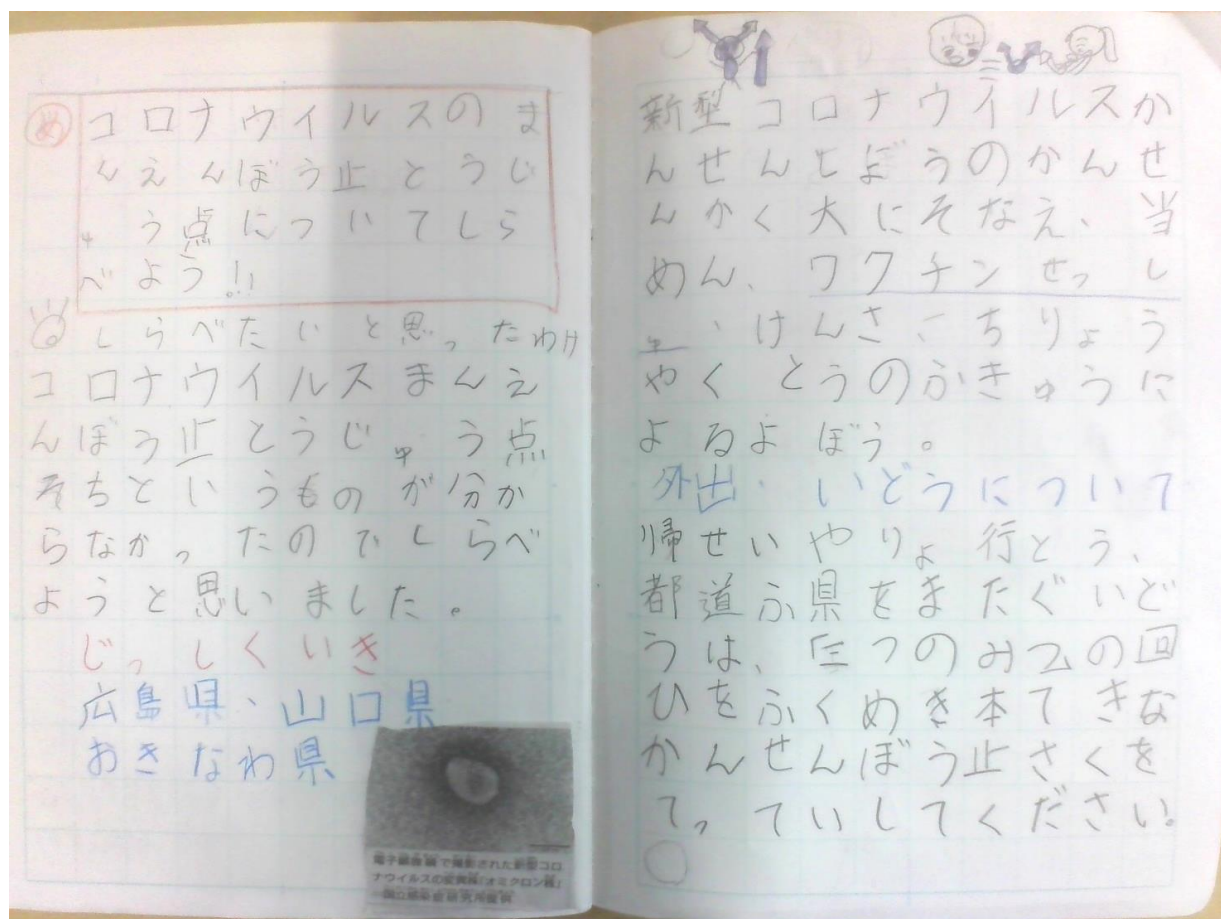 め
コロナウイルスのま
んえんぼう止とうじ
ゅう点についてしら
べよう!!
しらべたいと思ったわけ
コロナウイルスまんえ
んぼう止とうじゅう点
そちというものが分か
らなかったのでしらべ
ようと思いました。
じっしくいき
広島県、山口県
おきなわ県
電子顕微鏡で撮影された新型コロ
ナウイルスの変異株「オミクロン株」
=国立感染症研究所提供
新型コロナウイルスか
んせんとぼうのかんせ
んかく大にそなえ、当
めん、ワクチンせっし
ゅ、けんさ、ちりょう
やくとうのふきゅうに
よるよぼう。
外出・いどうについて
帰せいやりょ行とう、
都道ふ県をまたぐいど
うは、三つのみつの回
ひをふくめき本てきな
かんせんぼう止さくを
てっていしてください。